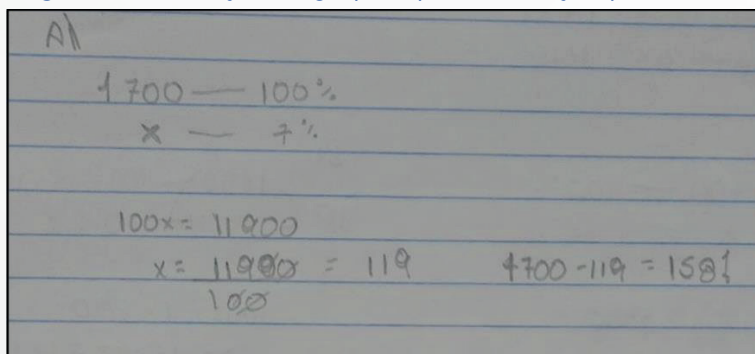 A)
1700 — 100%
x — 7%
100x = 11900
x = 11900 = 119 1700 - 119 = 1581
100